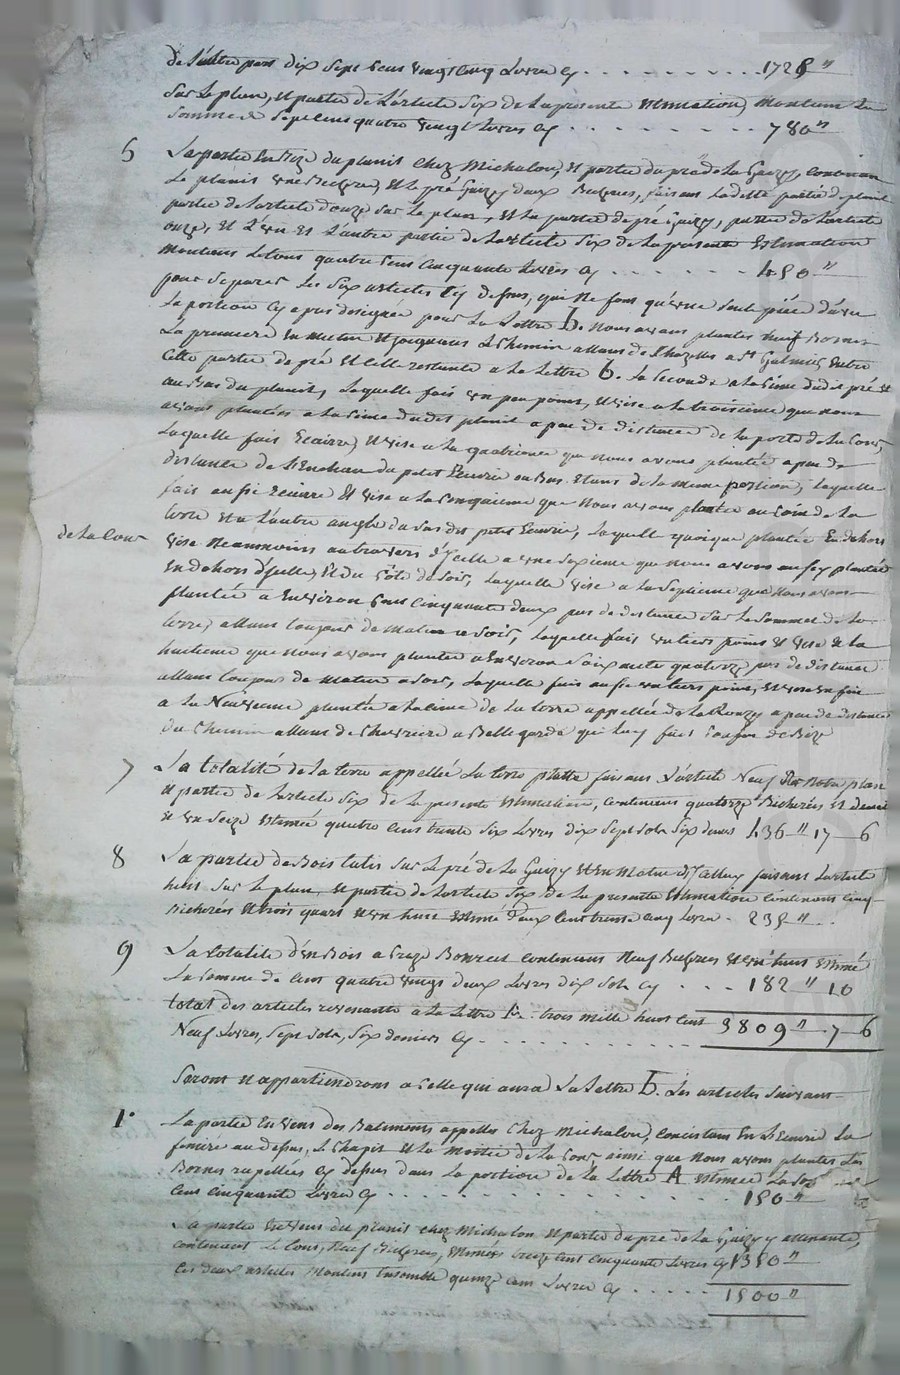 de l'autre part dix sept cens vingt cinq livres cy . . . . . . . . . . 1725 "
sur le plan, et partie de l'article six de la presente estimation, montant la
somme de sept cens quatre vingt livres cy . . . . . . . . 780 "
6 La partie en bize du planit chez Michalon, et partie du pré de la Goizy, contenan
le planit une et le pré Goizy deux faisant ladette partie de planit
partie de l'article douze sur le plan, et la partie de pré Goizy, partie de l'article
onze, et l'un et l'autre partie de l'article six de la presente estimation
montant le tous quatre cens cinquante livres cy . . . . . . 450 "
pour separer les six articles cy dessus, qui ne font qu'une seule piece d'avec
la portion cy apres designée pour la lettre B. nous avons plantés neuf bornes
la premiere en matin et joignant le chemin allant de Chazelles a St Galmier entre
cette partie de pré et celle restante a la lettre B. la seconde a la cime dudit pré et
au bas du planit, laquelle fait un peu point, et vise a la troisieme que nous
avons plantés a la cime dudit planit a peu de distance de la porte de la Cour,
laquelle fait Ecaire, et vise a la quatrieme que nous avons plantée a peu de
distance de du petit Ecurie au bas et dans de la meme portion, laquelle
fait aussi Ecaire et vise a la cinquieme que nous avons plantée au coin de la
terre et a l'autre angle du bas dit petit Ecurie, laquelle quoique plantée en dehors
de la Cour vise neanmoins au travers d'ycelle a une sixieme que nous avons aussy plantée
en dehors d'ycelle, et du côté de soir, laquelle vise a la septieme que nous avons
plantée a environ cens cinquante deux pas de distance sur le sommet de la
terre, allant toujours de matin a soir, laquelle fait un tiers point et vise a la
huitieme que nous avons plantée a environ soixante quatorze pas de distance
allant toujours de matin a soir, laquelle fait aussi un tiers point, et vise enfin
a la neuvieme plantée a la cime de la terre appellée de la Ronzy a peu de distance
du chemin allant de Chevriere a Bellegarde qui luy fait confin de bize
7 La totalité de la terre appellée la terre platte faisant l'article neuf sur notre plan
et partie de l'article six de la presente estimation, contenant quatorze bicherées et demie
et un seize estimée quatre cens trente six livres dix sept sols six deniers 436 " 17 - 6
8 La partie de bois taillis sur le pré de la Goizy et en matin faisant l'article
huit sur le plan, et partie de l'article six de la presente estimation contenant cinq
bicherées et trois quarts et un huit estimé deux cens trente cinq livres - 235 " .
9 La totalité d'un bois a contenant neuf et un huit estimé
la somme de cent quatre vingt deux livres dix sols cy . . . 182 " 10
total des articles revenante a la lettre A. trois mille huit cens 3809 " - 7 - 6
neuf livres, sept sols, six deniers cy . . . . . . . . . .
Seront et appartiendrons a celle qui aura la lettre B. les articles suivant
1r La partie en vent des batiments appellés chez Michalon, consistant en l'Ecurie la
feniere au dessus, le chapit et la moitié de la Cour ainsi que nous avons plantés des
bornes rapellées cy dessus dans la portion de la lettre A estimée la somme
cent cinquante livres cy . . . . . . . . . . . . 150 "
La partie en vent du planit chez Michalon et partie du pré de la Goizy y attenante,
contenant le tous, neuf estimés treize cent cinquante livres cy 1350 "
Ces deux articles montent ensemble quinze cent livres cy . . . . . 1500 "